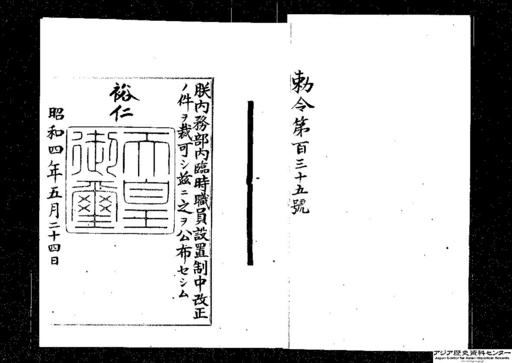 勅令第百三十五號
朕内務部内臨時職員設置制中改正
ノ件ヲ裁可シ茲ニ之ヲ公布セシム
裕仁
天皇
御璽
昭和四年五月二十四日
アジア歴史資料センター
Japan Center for Asian Historical Records